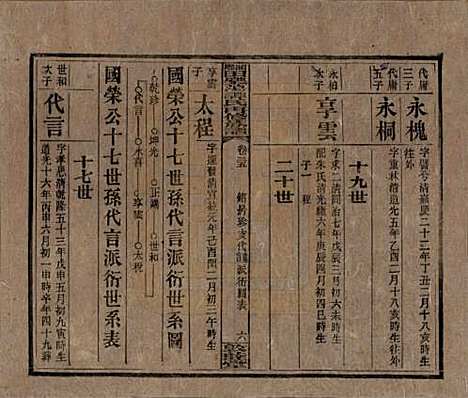 代唐三子
永槐
字聲兮清嘉慶二十二年丁丑二月十八亥時生
往外
代唐五子
永桐
字書林清道光五年乙酉二月十八亥時生往外
十九世
永柏次子
享雲
字東二清同治七年戊辰三月初六未時生
配朱氏清光緒六年庚辰四月初四巳時生
子一 程
二十世
享雲子
太程
字運 清宣統元年己酉閏二月初三午時生
卷三十五
派衍圖表
六
國榮公十七世孫代言派衍世系圖
乾珍 坤光 正 世和
代言 永 享 太程
國榮公十七世孫代言派衍世系表
十七世
世和次子
代言
字孝思清乾隆五十三年戊申五月初九寅時生
道光十六年丙申六月初一申時卒年四十九葬